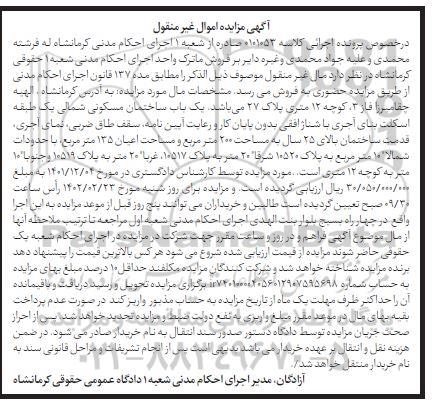 آگهی مزایده اموال غیر منقول
درخصوص پرونده اجرائی کلاسه 0101053 صادره از شعبه 1 اجرای احکام مدنی کرمانشاه له فرشته
محمدی و علیه جواد محمدی و غیره دایر بر فروش ماترک واحد اجرای احکام مدنی شعبه 1 حقوقی
کرمانشاه در نظر دارد مال غیر منقول موصوف ذیل الذکر را مطابق مده 137 قانون اجرای احکام مدنی
از طریق مزایده حضوری به فروش می رسد. مشخصات مال مورد مزایده: به آدرس کرمانشاه ، الهیه
جقامیرزا فاز 3، کوچه 12 متری پلاک 27 می باشد. یک باب ساختمان مسکونی شمالی یک طبقه
اسکلت بنای آجری با شناژ افقی بدون پایان کار و رعایت آیین نامه، سقف طاق ضربی، نمای آجری،
قدمت ساختمان بالای 25 سال به مساحت 200 متر مربع و مساحت اعیان 135 متر مربع، با حدودات
شمالا" 10 متر مربع به پلاک 10520 شرقا" 20 متر به پلاک 10517، غربا" 20 متر به پلاک 10519 و جنوبا" 10
متر به کوچه 12 متری است. . مورد مزایده توسط کارشناس دادگستری در مورخ 1401/12/04 به مبلغ
30/050/000/000 ریال ارزیابی گردیده است. و مزایده برای روز شنبه مورخ 1402/02/23 راس ساعت
09/30 صبح تعیین گردیده است طالبین و خریداران می توانند پنج روز قبل از موعد مزایده به این اجرا
واقع در چهار راه بسیج بلوار بنت الهدی اجرای احکام مدنی شعبه اول مراجعه تا ترتیب ملاحظه آنها
از مال موضوع آگهی فراهم و در روز و ساعت مقرر جهت شرکت در مزایده در اجرای احکام شعبه یک
حقوقی حاضر شوند مزایده از قیمت ارزیابی شده شروع می شود هر کس بالاترین قیمت را پیشنهاد دهد
برنده مزایده شناخته خواهد شد و شرکت کنندگان مزایده مکلفند حداقل 10 درصد مبلغ بهای مزایده
به حساب شماره برگزاری مزایده تحویل و رسید دریافت و باقیمانده
آن را حداکثر ظرف مهلت یک ماه از تاریخ مزایده به حساب مذبور واریز کند در صورت عدم پرداخت
بقیه بهای مال در موعد مقرر مبلغ واریزی به نفع دولت ضبط و مزایده تجدید خواهد شد. پس از احراز
صحت جریان مزایده توسط دادگاه دستور صدور سند انتقال به نام خریدار صادر می شود. در ضمن
هزینه نقل و انتقال بر عهده خریدار می باشد بدیهی است پس از انجام تشریفات و مراحل قانونی سند به
نام خریدار منتقل خواهد شد./
آزادگان، مدیر اجرای احکام مدنی شعبه 1 دادگاه عمومی حقوقی کرمانشاه